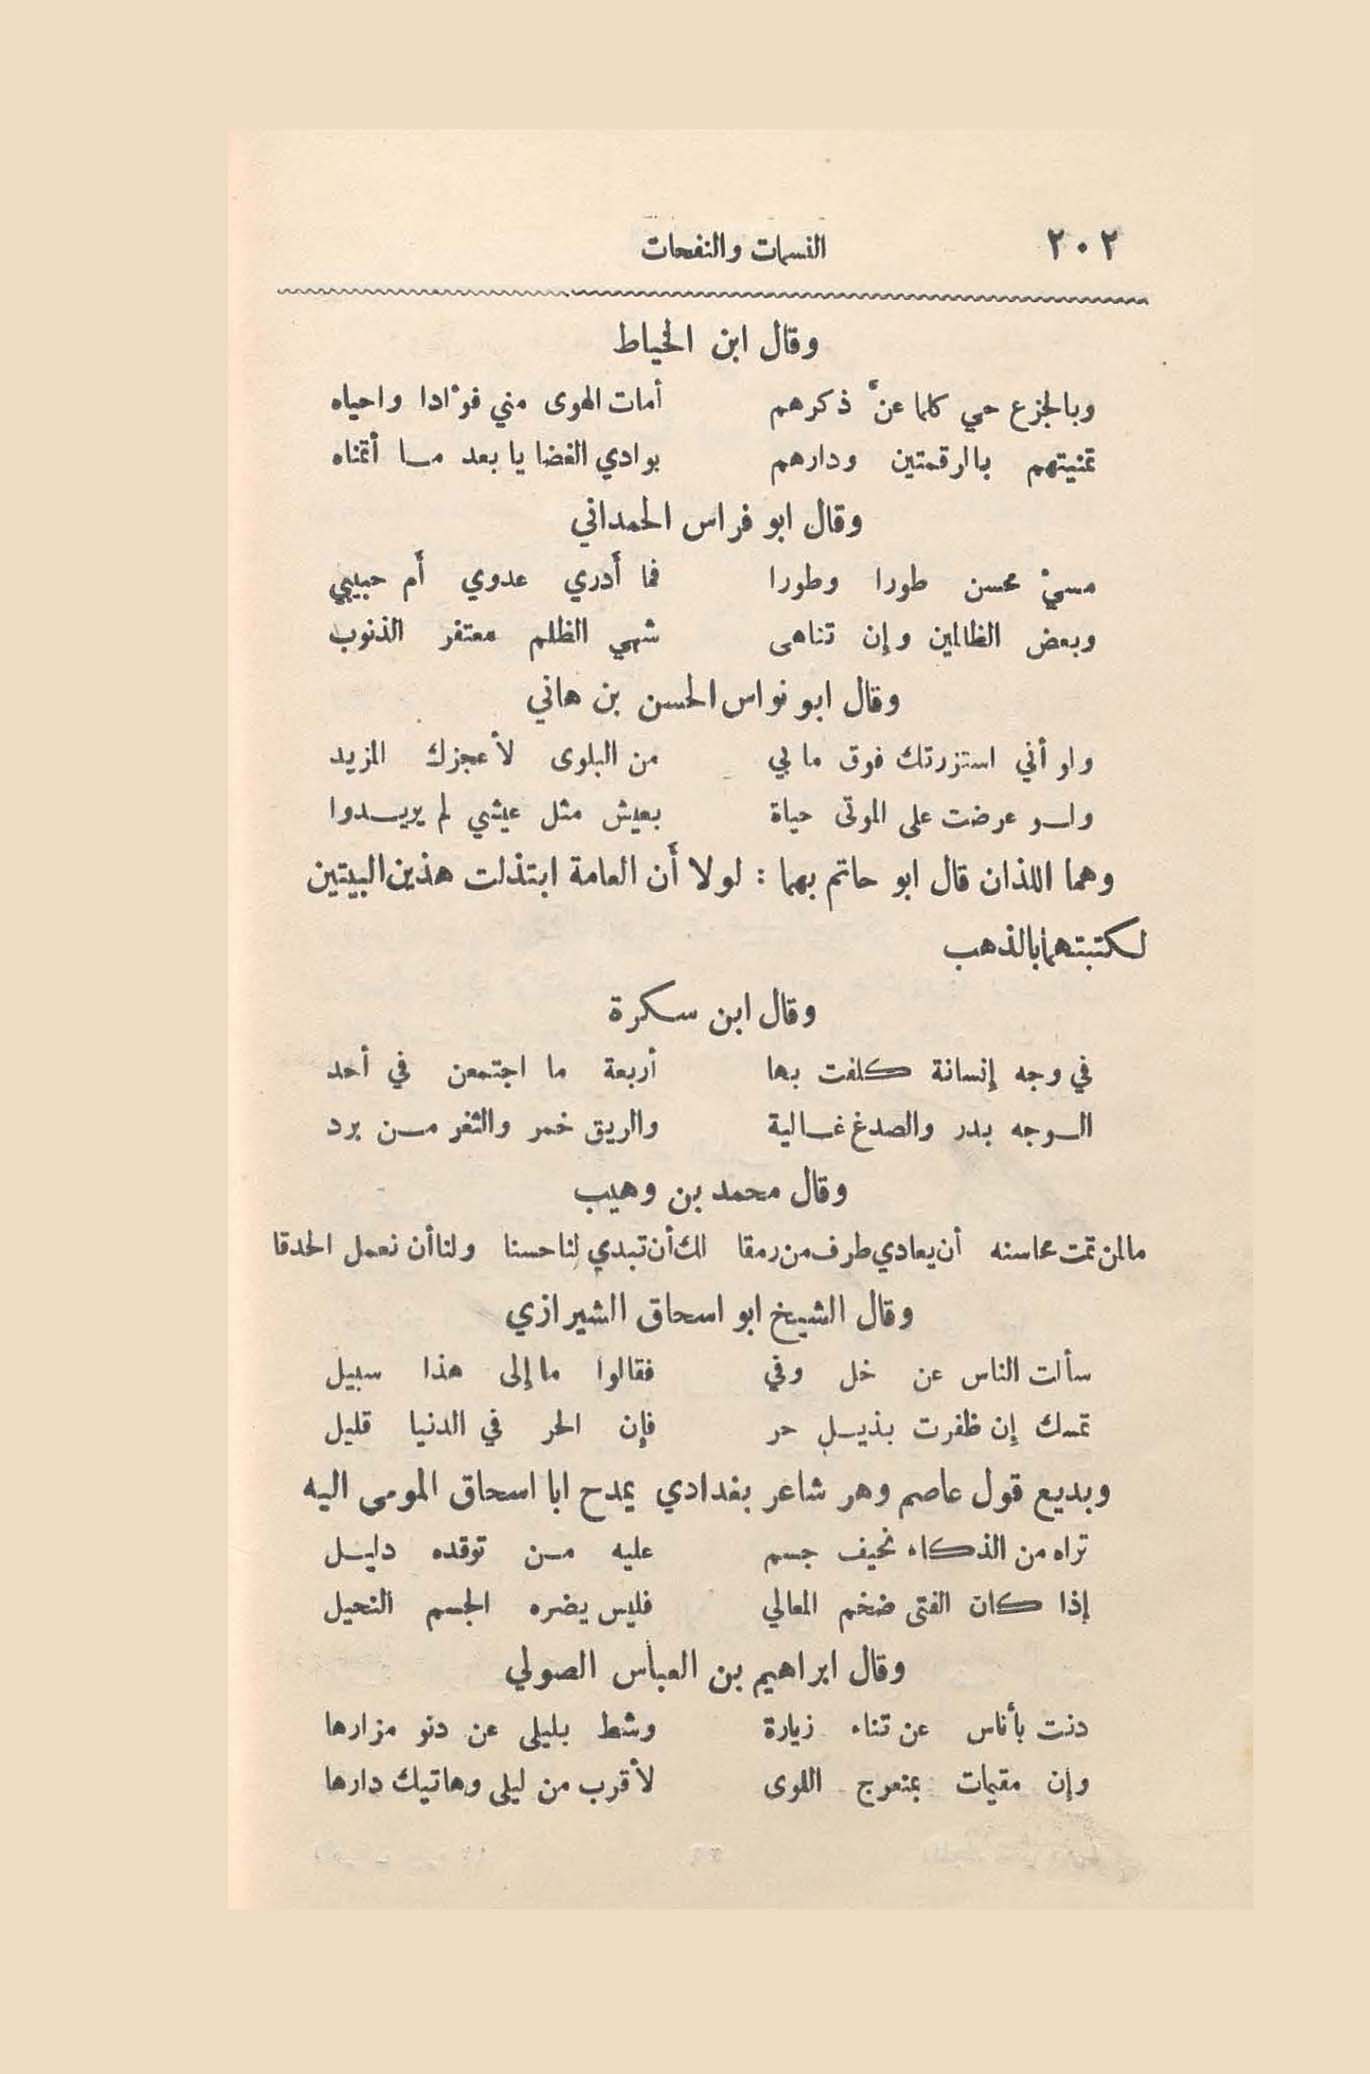 ٢٠٢ النسمات والنفحات
وقال ابن الخياط
وبالجزع حي كلما عنّ ذكرهم أمات الهوى مني فؤادا واحياه
تمنيتهم بالرقمتين ودارهم بوادي الغضا يا بعد ما أتمناه
وقال ابو فراس الحمداني
مسيءٌ محسن طورا وطورا فما أدري عدوي أم حبيبي
وبعض الظالمين وإن تناهى شهي الظلم مغتفر الذنوب
وقال ابو نواس الحسن بن هاني
ولو أني استزرتك فوق ما بي من البلوى لأعجزك المزيد
ولو عرضت على الموتى حياة بعيش مثل عيشي لم يريدوا
وهما اللذان قال ابو حاتم بهما : لولا أن العامة ابتذلت هذين البيتين
لكتبتهما بالذهب
وقال ابن سكرة
في وجه إنسانة كلفت بها أربعة ما اجتمعن في أحد
الوجه بدر والصدغ غالية والريق خمر والثغر من برد
وقال محمد بن وهيب
مالمن تمت محاسنه أن يعادي طرف من رمقا لك أن تبدي لنا حسنا ولنا أن نعمل الحدقا
وقال الشيخ ابو اسحاق الشيرازي
سألت الناس عن خل وفي فقالوا ما إلى هذا سبيل
تمسك إن ظفرت بذيل حر فإن الحر في الدنيا قليل
وبديع قول عاصم وهر شاعر بغدادي يمدح ابا اسحاق المومى اليه
تراه من الذكاء نحيف جسم عليه من توقده دليل
إذا كان الفتى ضخم المعالي فليس يضره الجسم النحيل
وقال ابراهيم بن العباس الصولي
دنت بأناس عن تناء زيارة وشط بليلى عن دنو مزارها
وإن مقيمات بمنعرج اللوى لأقرب من ليلى وهاتيك دارها